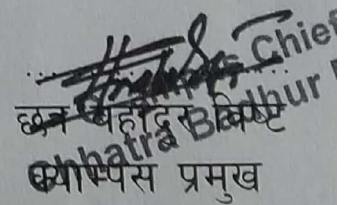 Chief
छत्र बहादुर बिष्ट
Chhatra Badhur
क्याम्पस प्रमुख